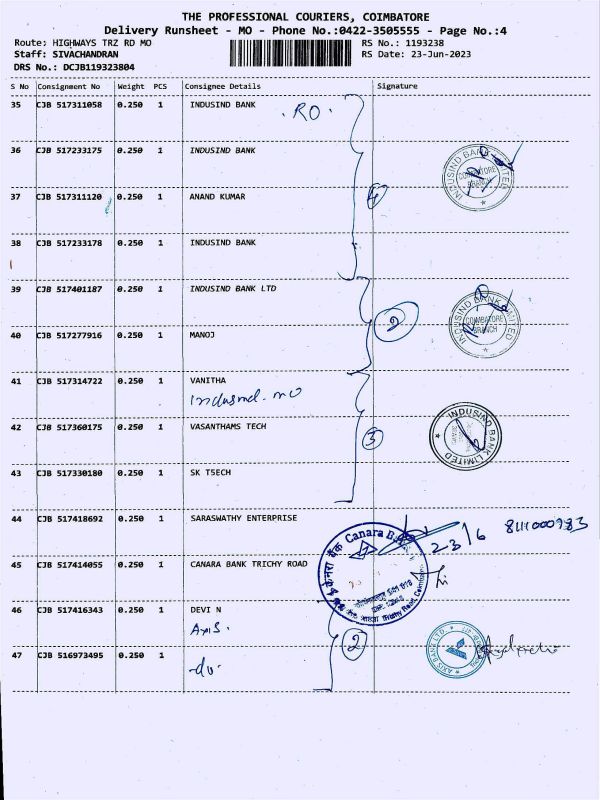 THE PROFESSIONAL COURIERS, COIMBATORE
Delivery Runsheet - MO - Phone No.:0422-3505555 - Page No.:4
Route: HIGHWAYS TRZ RD MO
RS No.: 1193238
Staff: SIVACHANDRAN
RS Date: 23-Jun-2023
DRS No.: DCJB119323804
S No Consignment No Weight PCS Consignee Details Signature
35 CJB 517311058 0.250 1 INDUSIND BANK
. RO .
36 CJB 517233175 0.250 1 INDUSIND BANK
INDUSIND BANK LIMITED
COIMBATORE
BRANCH
37 CJB 517311120 0.250 1 ANAND KUMAR
4
38 CJB 517233178 0.250 1 INDUSIND BANK
39 CJB 517401187 0.250 1 INDUSIND BANK LTD
2
INDUSIND BANK LIMITED
COIMBATORE
BRANCH
40 CJB 517277916 0.250 1 MANOJ
41 CJB 517314722 0.250 1 VANITHA
Indusind. mo
42 CJB 517360175 0.250 1 VASANTHAMS TECH
3
INDUSIND BANK LIMITED
43 CJB 517330180 0.250 1 SK T5ECH
44 CJB 517418692 0.250 1 SARASWATHY ENTERPRISE
23/6
8111000983
45 CJB 517414055 0.250 1 CANARA BANK TRICHY ROAD
केनरा बैंक Canara Bank
Trichy Road, Coimbatore
46 CJB 517416343 0.250 1 DEVI N
Axis.
2
AXIS BANK LTD
47 CJB 516973495 0.250 1
-do-